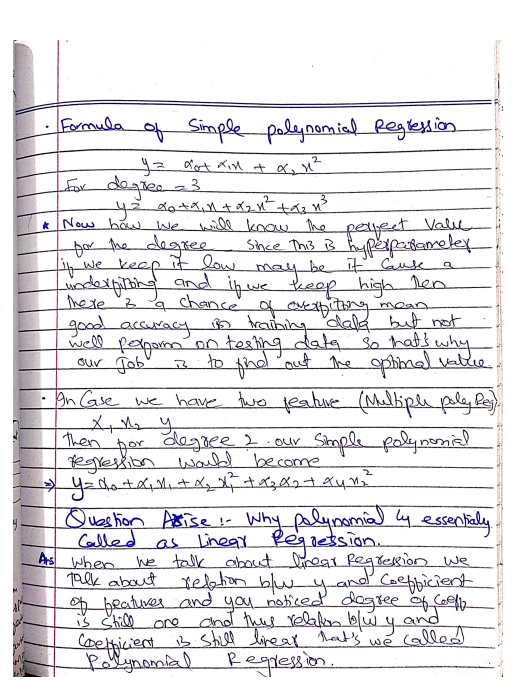 · Formula of Simple polynomial Regression
y = α₀ + α₁x + α₂x²
For degree = 3
y = α₀ + α₁x + α₂x² + α₃x³
* Now how we will know the perfect Value
for the degree since This is hyperparameter
if we keep it low may be it Cause a
underfitting and if we keep high then
there is a chance of overfitting mean
good accuracy in training data but not
well perform on testing data so that's why
our Job is to find out the optimal value
· In Case we have two feature (Multiple poly Reg)
x₁ x₂ y
Then for degree 2 our Simple polynomial
regression would become
⇒ y = α₀ + α₁x₁ + α₂x₁² + α₃x₂ + α₄x₂²
Question Arise :- Why polynomial is essentialy
Called as Linear Regression.
Ans When we talk about linear Regression we
Talk about relation b/w y and Coefficient
of features and you noticed degree of Coeff
is still one and thus relation b/w y and
Coefficient is still linear that's we called
Polynomial Regression.